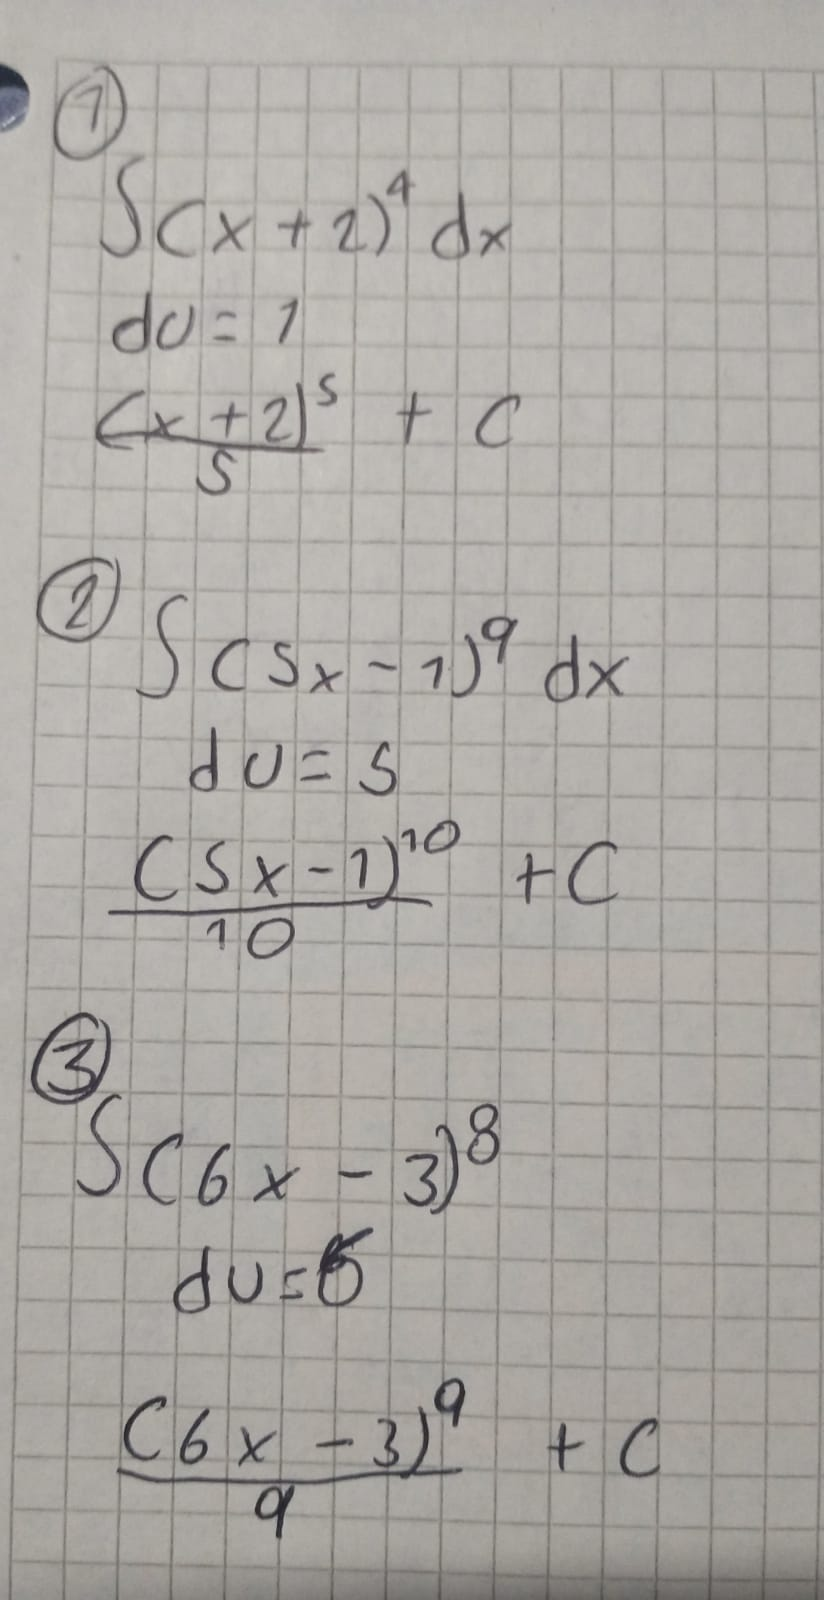 ①
∫(x + 2)⁴ dx
du = 1
(x + 2)⁵/5 + C
②
∫(5x - 1)⁹ dx
du = 5
(5x - 1)¹⁰/10 + C
③
∫(6x - 3)⁸
du = 6
(6x - 3)⁹/9 + C